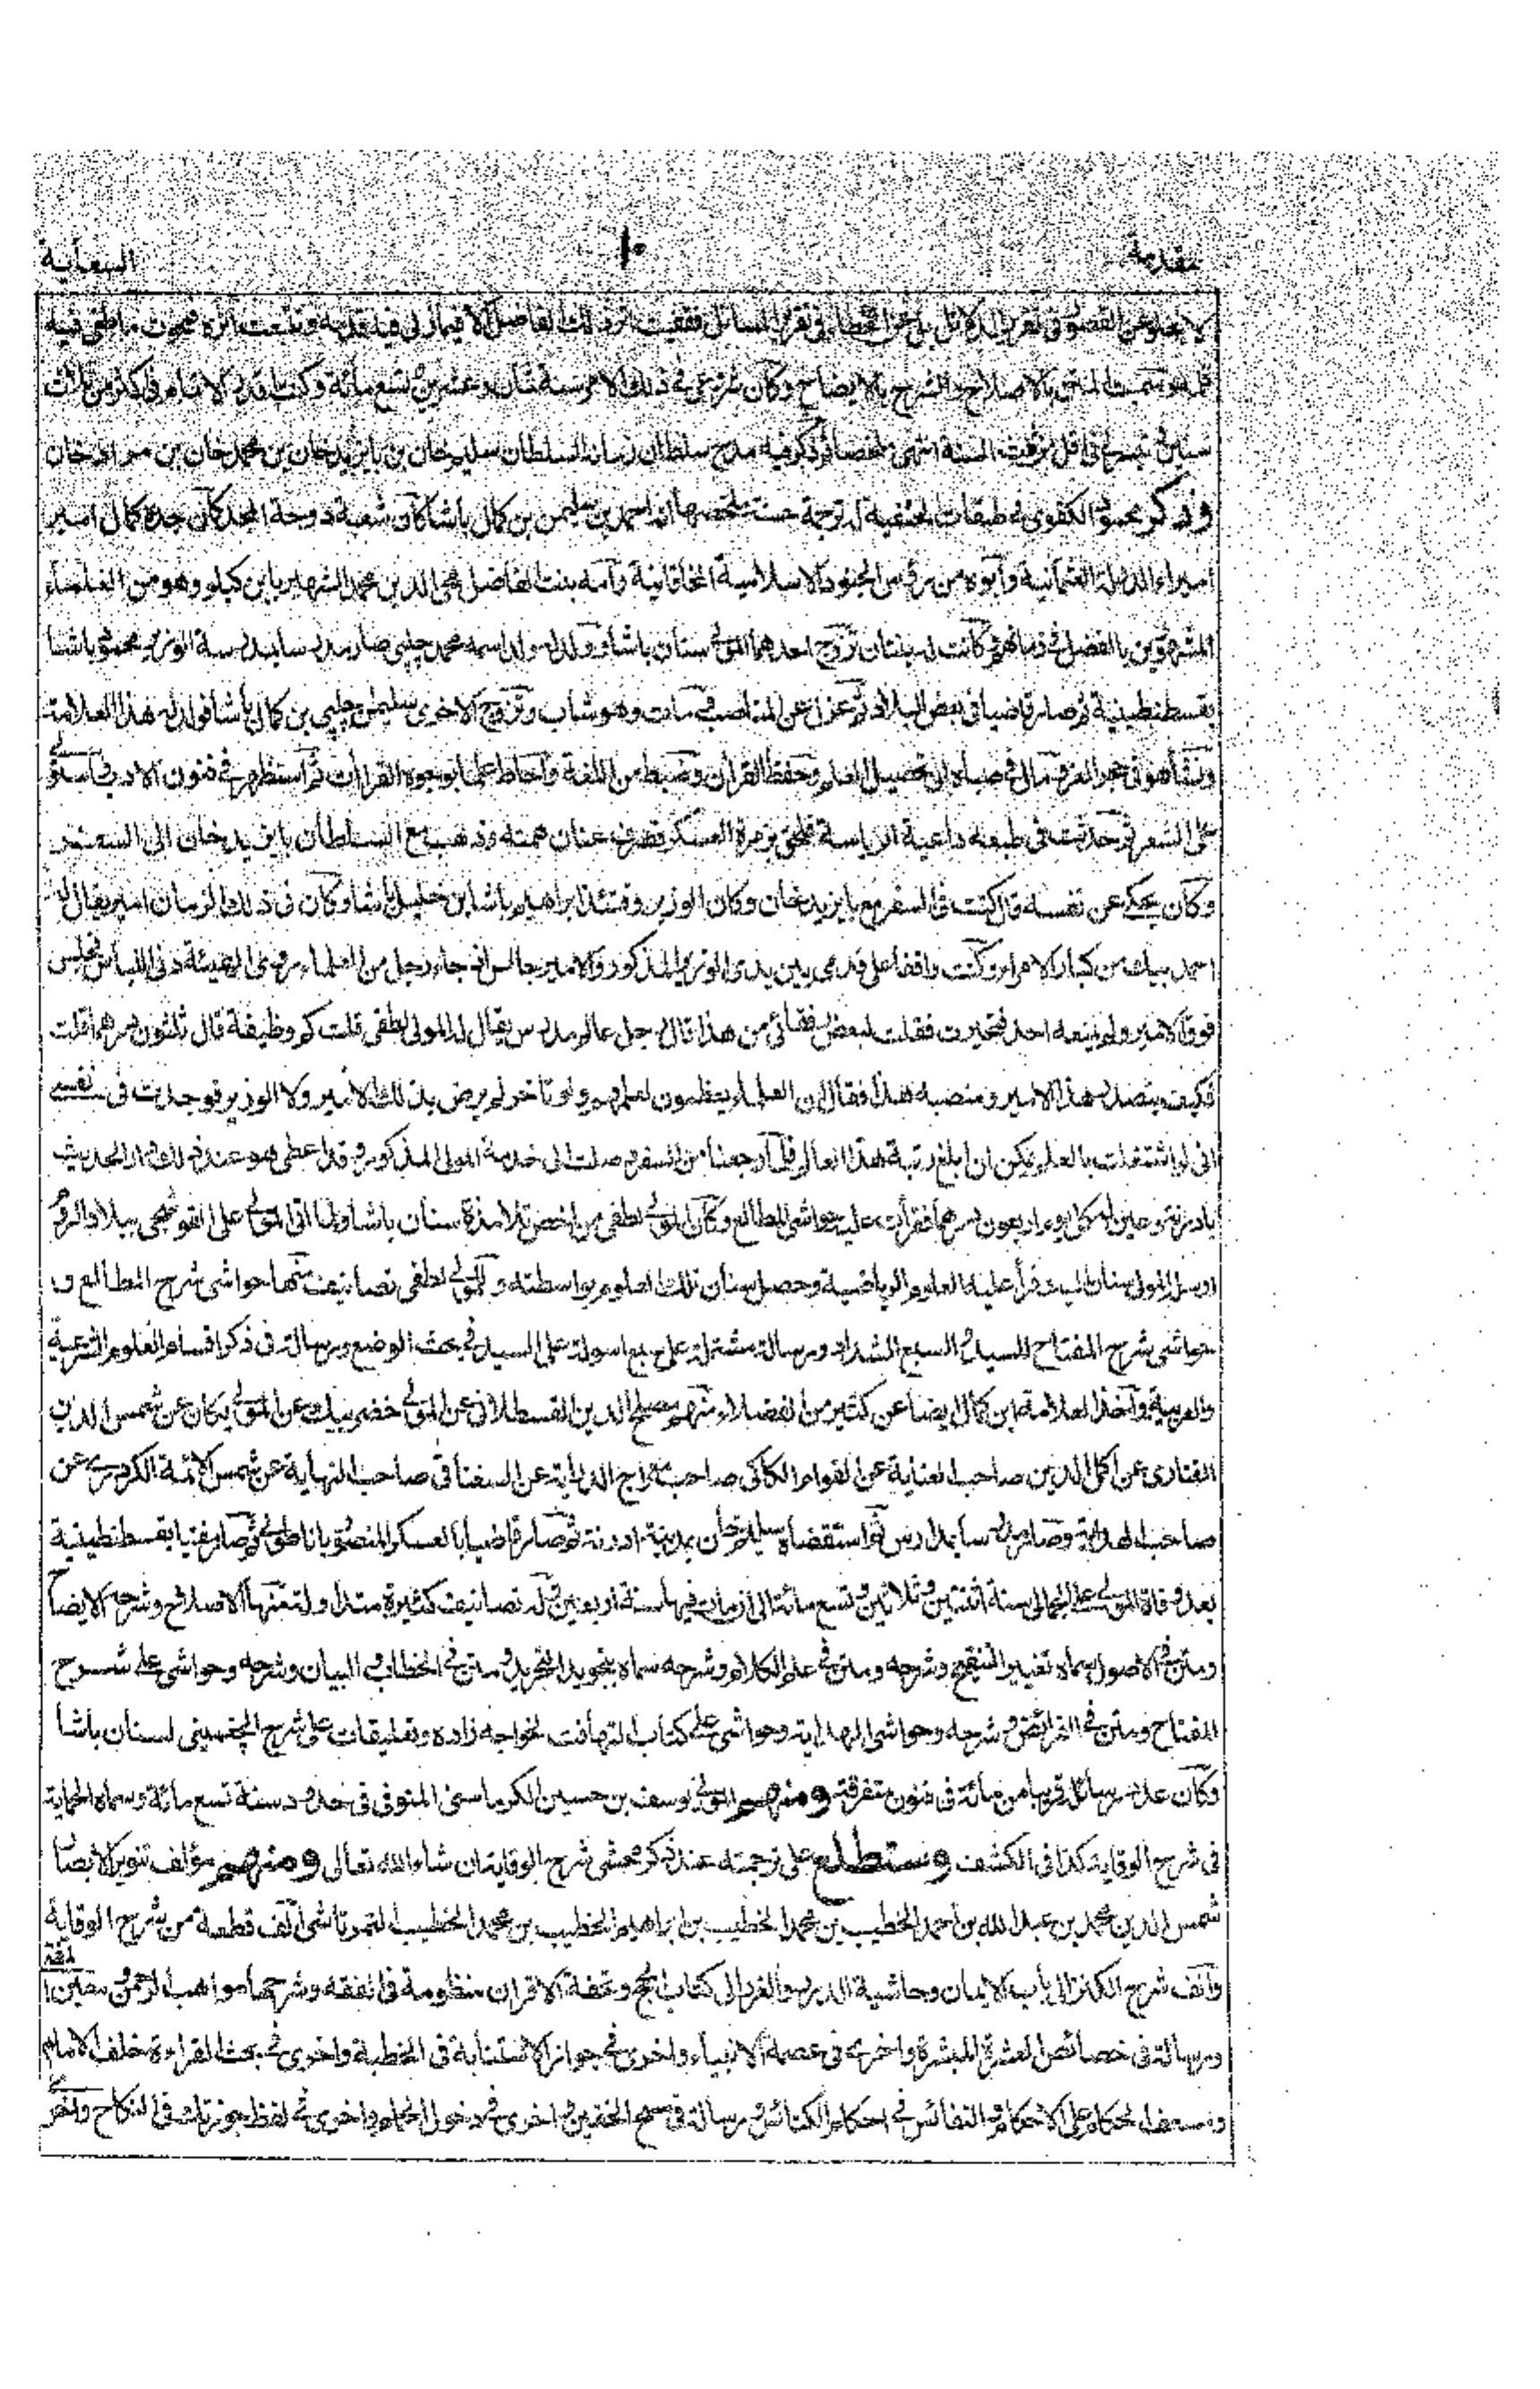 مقدمة ١٠ السعاية
لا يخلو عن القصور في تقرير الدلائل بل عن الخطاء في تقرير المسائل فقفيت اثر ذلك الفاضل الا فيما زل فيه قدمه وتتبعت اثره فمحوت ما طغى فيه
قلمه وسميت المتن بالاصلاح والشرح بالايضاح وكان شروعي في ذلك الامر سنة ثمان وعشرين وتسع مائة وكنت الاتمام في اكثر من ثلاث
سنين السنة انتهى ملخصا وذكر فيه مدح سلطان زمانه السلطان سليم خان بن بايزيد خان بن محمد خان بن مراد خان
وذكر محمود الكفوي في طبقات الحنفية له ترجمة حسنة ملخصها انه احمد بن سليمن بن كمال باشا كان شعبة دوحة المجد كان جده كمال امير
امراء الدولة العثمانية وابوه من رؤس الجنود الاسلامية الخاقانية وامه بنت الفاضل محي الدين محمد الشهير بابن كبلو وهو من العلماء
المشهورين بالفضل في زمانهم كانت له بنتان تزوج احدهما المولى سنان باشا وولد له ولد اسمه محمد چلبي صار مدرسا بمدرسة الوزير محمود باشا
بقسطنطينية ثم صار قاضيا في بعض البلاد ثم عزل عن المناصب مات وهو شاب وتزوج الاخرى سليمن چلبي بن كمال باشا فولد له هذا العلامة
ونشأ هو في حجر العز ثم مال في صباه الى تحصيل العلم وحفظ القرآن وضبط من اللغة واحاط علما بوجوه القرآن ثم استظهر في فنون الادب
على الشعر ثم حدثت في طبعه داعية الرياسة فلحق بزمرة العسكر فصرف عنان همته وذهب مع السلطان بايزيد خان الى السفر
وكان يحكي عن نفسه قال كنت في السفر مع بايزيد خان وكان الوزير وقتئذ ابراهيم باشا بن خليل باشا وكان في ذلك الزمان امير يقال له
احمد بيك من كبار الامراء وكنت واقفا على قدمي بين يدي الوزير المذكور والامير جالس اذ جاء رجل من العلماء رث الهيئة دني اللباس فجلس
فوق الامير ولم يمنعه احد فتحيرت فقلت لبعض رفقائي من هذا قال رجل عالم مدرس يقال له المولى لطفي قلت كم وظيفته قال ثلثون درهما قلت
فكيف يتصدر هذا الامير ومنصبه هذا فقال ان العلماء يعظمون لعلمهم ولو تاخر لم يرض بذلك الامير ولا الوزير فوجدت في نفسي
اني لو اشتغلت بالعلم يمكن ان ابلغ رتبة هذا العالم فلما رجعنا من السفر وصلت الى خدمة المولى المذكور وقد اعطي هو عند ذلك دار الحديث
بادرنه وعين له كل يوم اربعون درهما فقرأت عليه حواشي المطالع وكان المولى لطفي من اخص تلامذة سنان باشا ولما اتى المولى على القوشجي ببلاد الروم
ارسل المولى سنان اليه وقرأ عليه العلوم الرياضية وحصل سنان تلك العلوم بواسطته وللمولى لطفي تصانيف منها حواشي شرح المطالع و
حواشي شرح المفتاح للسيد والسبع الشداد ورسالة مشتملة على سبع اسولة على السيد في بحث الوضع ورسالة في ذكر اقسام العلوم الشرعية
والعربية واخذ العلامة ابن كمال ايضا عن كثير من الفضلاء منهم مصلح الدين القسطلاني عن المولى خضر بيك عن المولى يكان عن شمس الدين
الفناري عن اكمل الدين صاحب العناية عن القوام الكاكي صاحب معراج الدراية عن السغناقي صاحب النهاية عن شمس الائمة الكردري عن
صاحب الهداية وصار مدرسا بمدارس ثم استقضاه سليم خان بمدينة ادرنه ثم صار قاضيا بالعسكر المنصور باناطولي ثم صار مفتيا بقسطنطينية
بعد وفاة المولى على الجمالي سنة اثنتين وثلاثين وتسع مائة الى ان مات فيها سنة اربعين وله تصانيف كثيرة متداولة منها الاصلاح وشرحه الايضاح
ومتن في الاصول سماه تغيير التنقيح وشرحه ومتن في علم الكلام وشرحه سماه بتجويد التجريد ومتن في الخطاب البيان وشرحه وحواشي على شرح
المفتاح ومتن في الفرائض وشرحه وحواشي الهداية وحواشي على كتاب التهافت لخواجه زاده وتعليقات على شرح الچغميني لسنان باشا
وكان عدد رسائله قريبا من مائة في فنون متفرقة ومنهم المولى يوسف بن حسين الكرماسني المتوفى في حدود سنة تسع مائة وسماه الحماية
في شرح الوقاية كذا في الكشف وستطلع على ترجمته عند ذكر محشي شرح الوقاية ان شاء الله تعالى ومنهم مؤلف تنوير الابصار
شمس الدين محمد بن عبد الله بن احمد الخطيب بن محمد الخطيب بن ابراهيم الخطيب بن محمد الخطيب التمرتاشي الف قطعة من شرح الوقاية
والف شرح الكنز الى باب الايمان وحاشية الدرر والغرر الى كتاب الحج وتحفة الاقران منظومة في الفقه وشرحها مواهب الرحمن ومعين المفتي
ورسالة في خصائص العشرة المبشرة واخرى في عصمة الانبياء واخرى في جواز الاستنابة في الخطبة واخرى في بحث القراءة خلف الامام
ومسعف الحكام على الاحكام والنفائس في احكام الكنائس ورسالة في مسح الخفين واخرى في دخول الحمام واخرى في لفظ جوزتك في النكاح واخرى